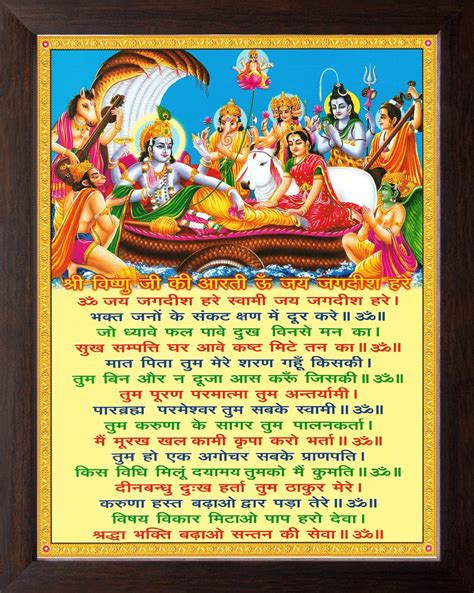 श्री विष्णु जी की आरती ॐ जय जगदीश हरे
ॐ जय जगदीश हरे स्वामी जय जगदीश हरे ।
भक्त जनों के संकट क्षण में दूर करे ॥ ॐ ॥
जो ध्यावे फल पावे दुख विनसे मन का ।
सुख सम्पत्ति घर आवे कष्ट मिटे तन का ॥ ॐ ॥
मात पिता तुम मेरे शरण गहूँ किसकी ।
तुम बिन और न दूजा आस करूँ जिसकी ॥ ॐ ॥
तुम पूरण परमात्मा तुम अन्तर्यामी ।
पारब्रह्म परमेश्वर तुम सबके स्वामी ॥ ॐ ॥
तुम करुणा के सागर तुम पालनकर्ता ।
मैं मूरख खल कामी कृपा करो भर्ता ॥ ॐ ॥
तुम हो एक अगोचर सबके प्राणपति ।
किस विधि मिलूं दयामय तुमको मैं कुमति ॥ ॐ ॥
दीनबन्धु दुःख हर्ता तुम ठाकुर मेरे ।
करुणा हस्त बढ़ाओ द्वार पड़ा तेरे ॥ ॐ ॥
विषय विकार मिटाओ पाप हरो देवा ।
श्रद्धा भक्ति बढ़ाओ सन्तन की सेवा ॥ ॐ ॥